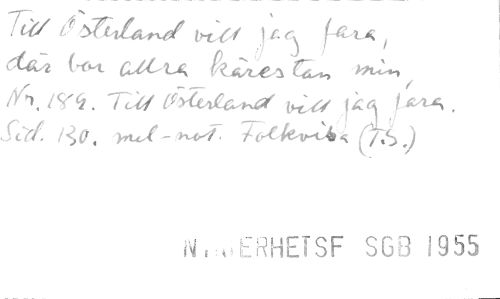 Till Österland vill jag fara,
där bor allra kärestan min,
Nr. 189. Till Österland vill jag fara.
Sid. 130. mel-not. Folkvisa (T.S.)
SGB 1955